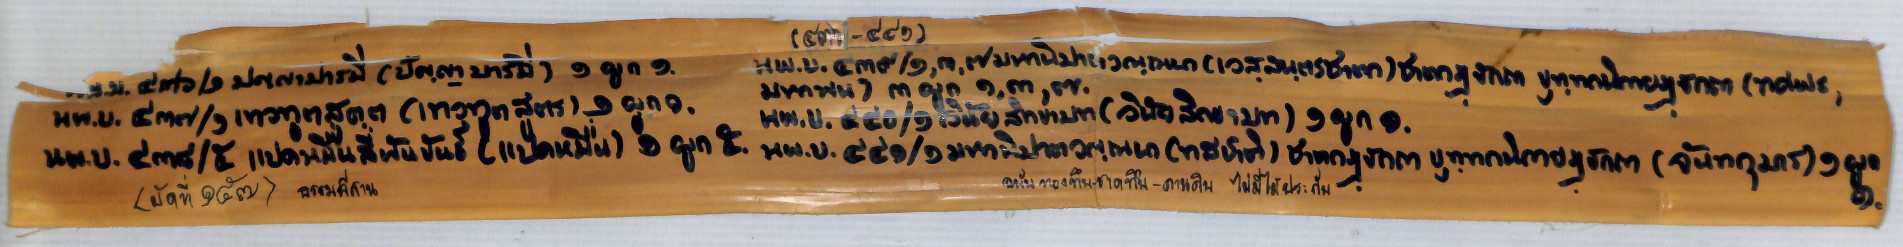 (๔๓๖ - ๔๔๑)
น.พ.บ. ๔๓๖/๑ ปญฺญาปารมี (ปัญญาบารมี) ๑ ผูก ๑.
นพ.บ. ๔๓๗/๑ เทวทูตสุตฺต (เทวทูตสูตร) ๑ ผูก ๑.
นพ.บ. ๔๓๘/๕ แปดหมื่นสี่พันขันธ์ (แปดหมื่น) ๑ ผูก ๕.
(มัดที่ ๑๕๗) ธรรมอีสาน
นพ.บ. ๔๓๙/๑,๓,๗ มหานิปาตวณฺณนา (เวสฺสนฺตรชาตก) ชาตกฏฺฐกถา ขุทฺทกนิกายฏฺฐกถา (ทศพร,
มหาพน) ๓ ผูก ๑,๓,๗.
นพ.บ. ๔๔๐/๑ วินัยสิกขาบท (วินัยสิกขาบท) ๑ ผูก ๑.
นพ.บ. ๔๔๑/๑ มหานิปาตวณฺณนา (ทสชาติ) ชาตกฏฺฐกถา ขุทฺทกนิกายฏฺฐกถา (จันทกุมาร) ๑ ผูก
๑.
ฉบับทองทึบ-ชาดทึบ-ลานดิบ ไม่มีไม้ประกับ